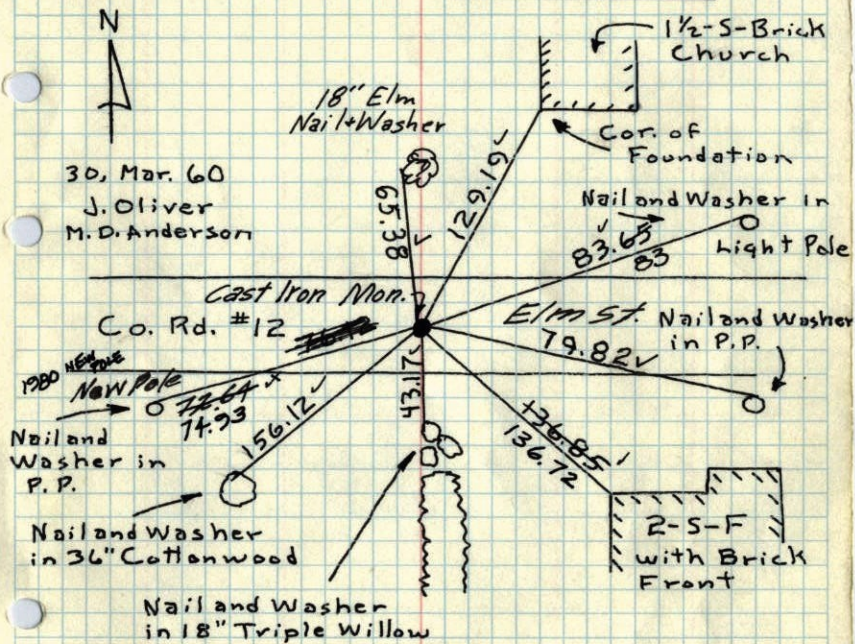 N
1½-S-Brick
Church
18" Elm
Nail+Washer
Cor. of
Foundation
30, Mar. 60
J. Oliver
M.D. Anderson
65.38 ✓
129.19 ✓
Nail and Washer in
Light Pole
83.65 ✓
83
Cast Iron Mon.
Co. Rd. #12
Elm St.
Nail and Washer
in P.P.
79.82 ✓
1980 NEW POLE
New Pole
72.64 x
74.93
43.17 ✓
156.12 ✓
136.85 ✓
136.72
Nail and
Washer in
P.P.
Nail and Washer
in 36" Cottonwood
2-S-F
with Brick
Front
Nail and Washer
in 18" Triple Willow